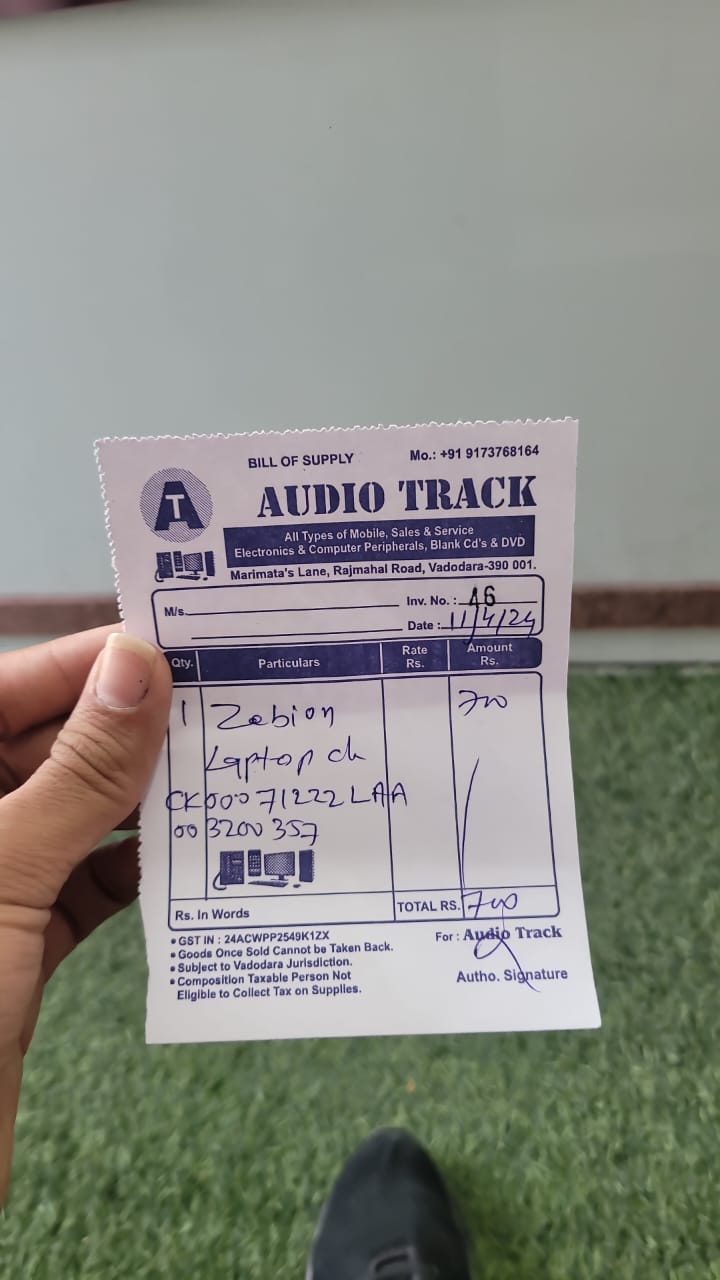 BILL OF SUPPLY
Mo.: +91 9173768164
AT
AUDIO TRACK
All Types of Mobile, Sales & Service
Electronics & Computer Peripherals, Blank Cd's & DVD
Marimata's Lane, Rajmahal Road, Vadodara-390 001.
M/s. Inv. No. : 46
Date : 11/4/24
Qty. Particulars Rate Rs. Amount Rs.
1 Zebion 700
Laptop ch
CK00071222LAA
003200357
Rs. In Words TOTAL RS. 700
• GST IN : 24ACWPP2549K1ZX
• Goods Once Sold Cannot be Taken Back.
• Subject to Vadodara Jurisdiction.
• Composition Taxable Person Not
Eligible to Collect Tax on Supplies.
For : Audio Track
Autho. Signature